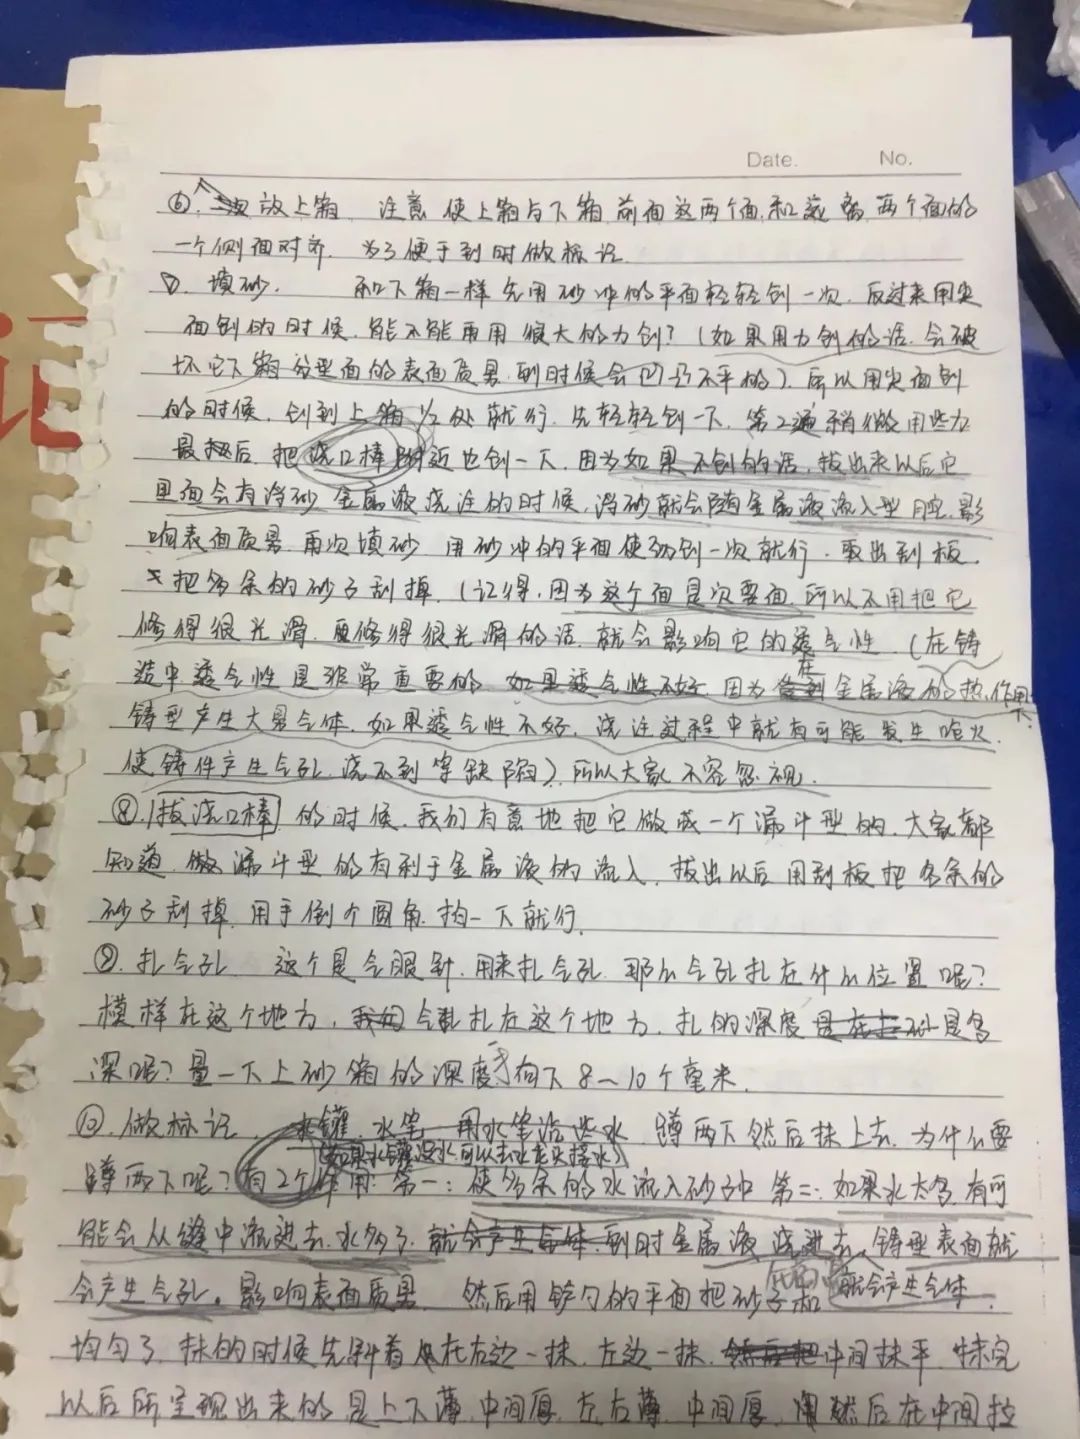 Date. No.
⑥. 放上箱. 注意使上箱与下箱前面这两个面,和 两个面的
一个侧面对齐. 为了便于到时做标记.
⑦. 填砂. 和下箱一样先用砂冲的平面轻轻刽一次. 反过来用尖
面刽的时候. 能不能再用很大的力刽?(如果用力刽的话.会破
坏它下箱分型面的表面质量.到时候会凹凸不平的).所以用尖面刽
的时候. 刽到上箱1/2处就行. 先轻轻刽一下. 第2遍稍微用些力
最后. 把浇口棒附近也刽一下. 因为如果不刽的话,拔出来以后它
里面会有浮砂 金属液浇注的时候,浮砂就会随金属液流入型腔.影
响表面质量. 再次填砂 用砂冲的平面使劲刽一次就行. 取出刮板.
把多余的砂子刮掉.(记得,因为这个面是次要面.所以不用把它
修得很光滑. 修得很光滑的话.就会影响它的透气性.(在铸
造中透气性是非常重要的. 如果透气性不好. 因为在金属液的热作用下.
铸型产生大量气体. 如果透气性不好. 浇注过程中就有可能发生呛火.
使铸件产生气孔.浇不到等缺陷).所以大家不容忽视.
⑧.拔浇口棒 的时候.我们有意地把它做成一个漏斗型的.大家都
知道. 做漏斗型的有利于金属液的流入. 拔出以后用刮板把多余的
砂子刮掉.用手倒个圆角.拍一下就行.
⑨. 扎气孔. 这个是气眼针.用来扎气孔. 那么气孔扎在什么位置呢?
模样在这个地方, 气孔扎在这个地方. 扎的深度是多
深呢?量一下上砂箱的深度 向下8~10个毫米.
⑩. 做标记. 水罐.水笔 用水笔沾些水 蹲两下然后抹上去.为什么要
(如果水罐没水可以去水龙头接水)
蹲两下呢?有2个作用:第一:使多余的水流入砂子中 第二:如果水太多.有可
能会从缝中流进去.水多了. 到时金属液浇进去.铸型表面就
会产生气孔。影响表面质量. 然后用铲勺的平面把砂子和 就会产生气体.
均匀了.抹的时候先斜着在右边一抹.左边一抹. 中间抹平.抹完
以后所呈现出来的是上下薄.中间厚.左右薄.中间厚. 然后在中间拉